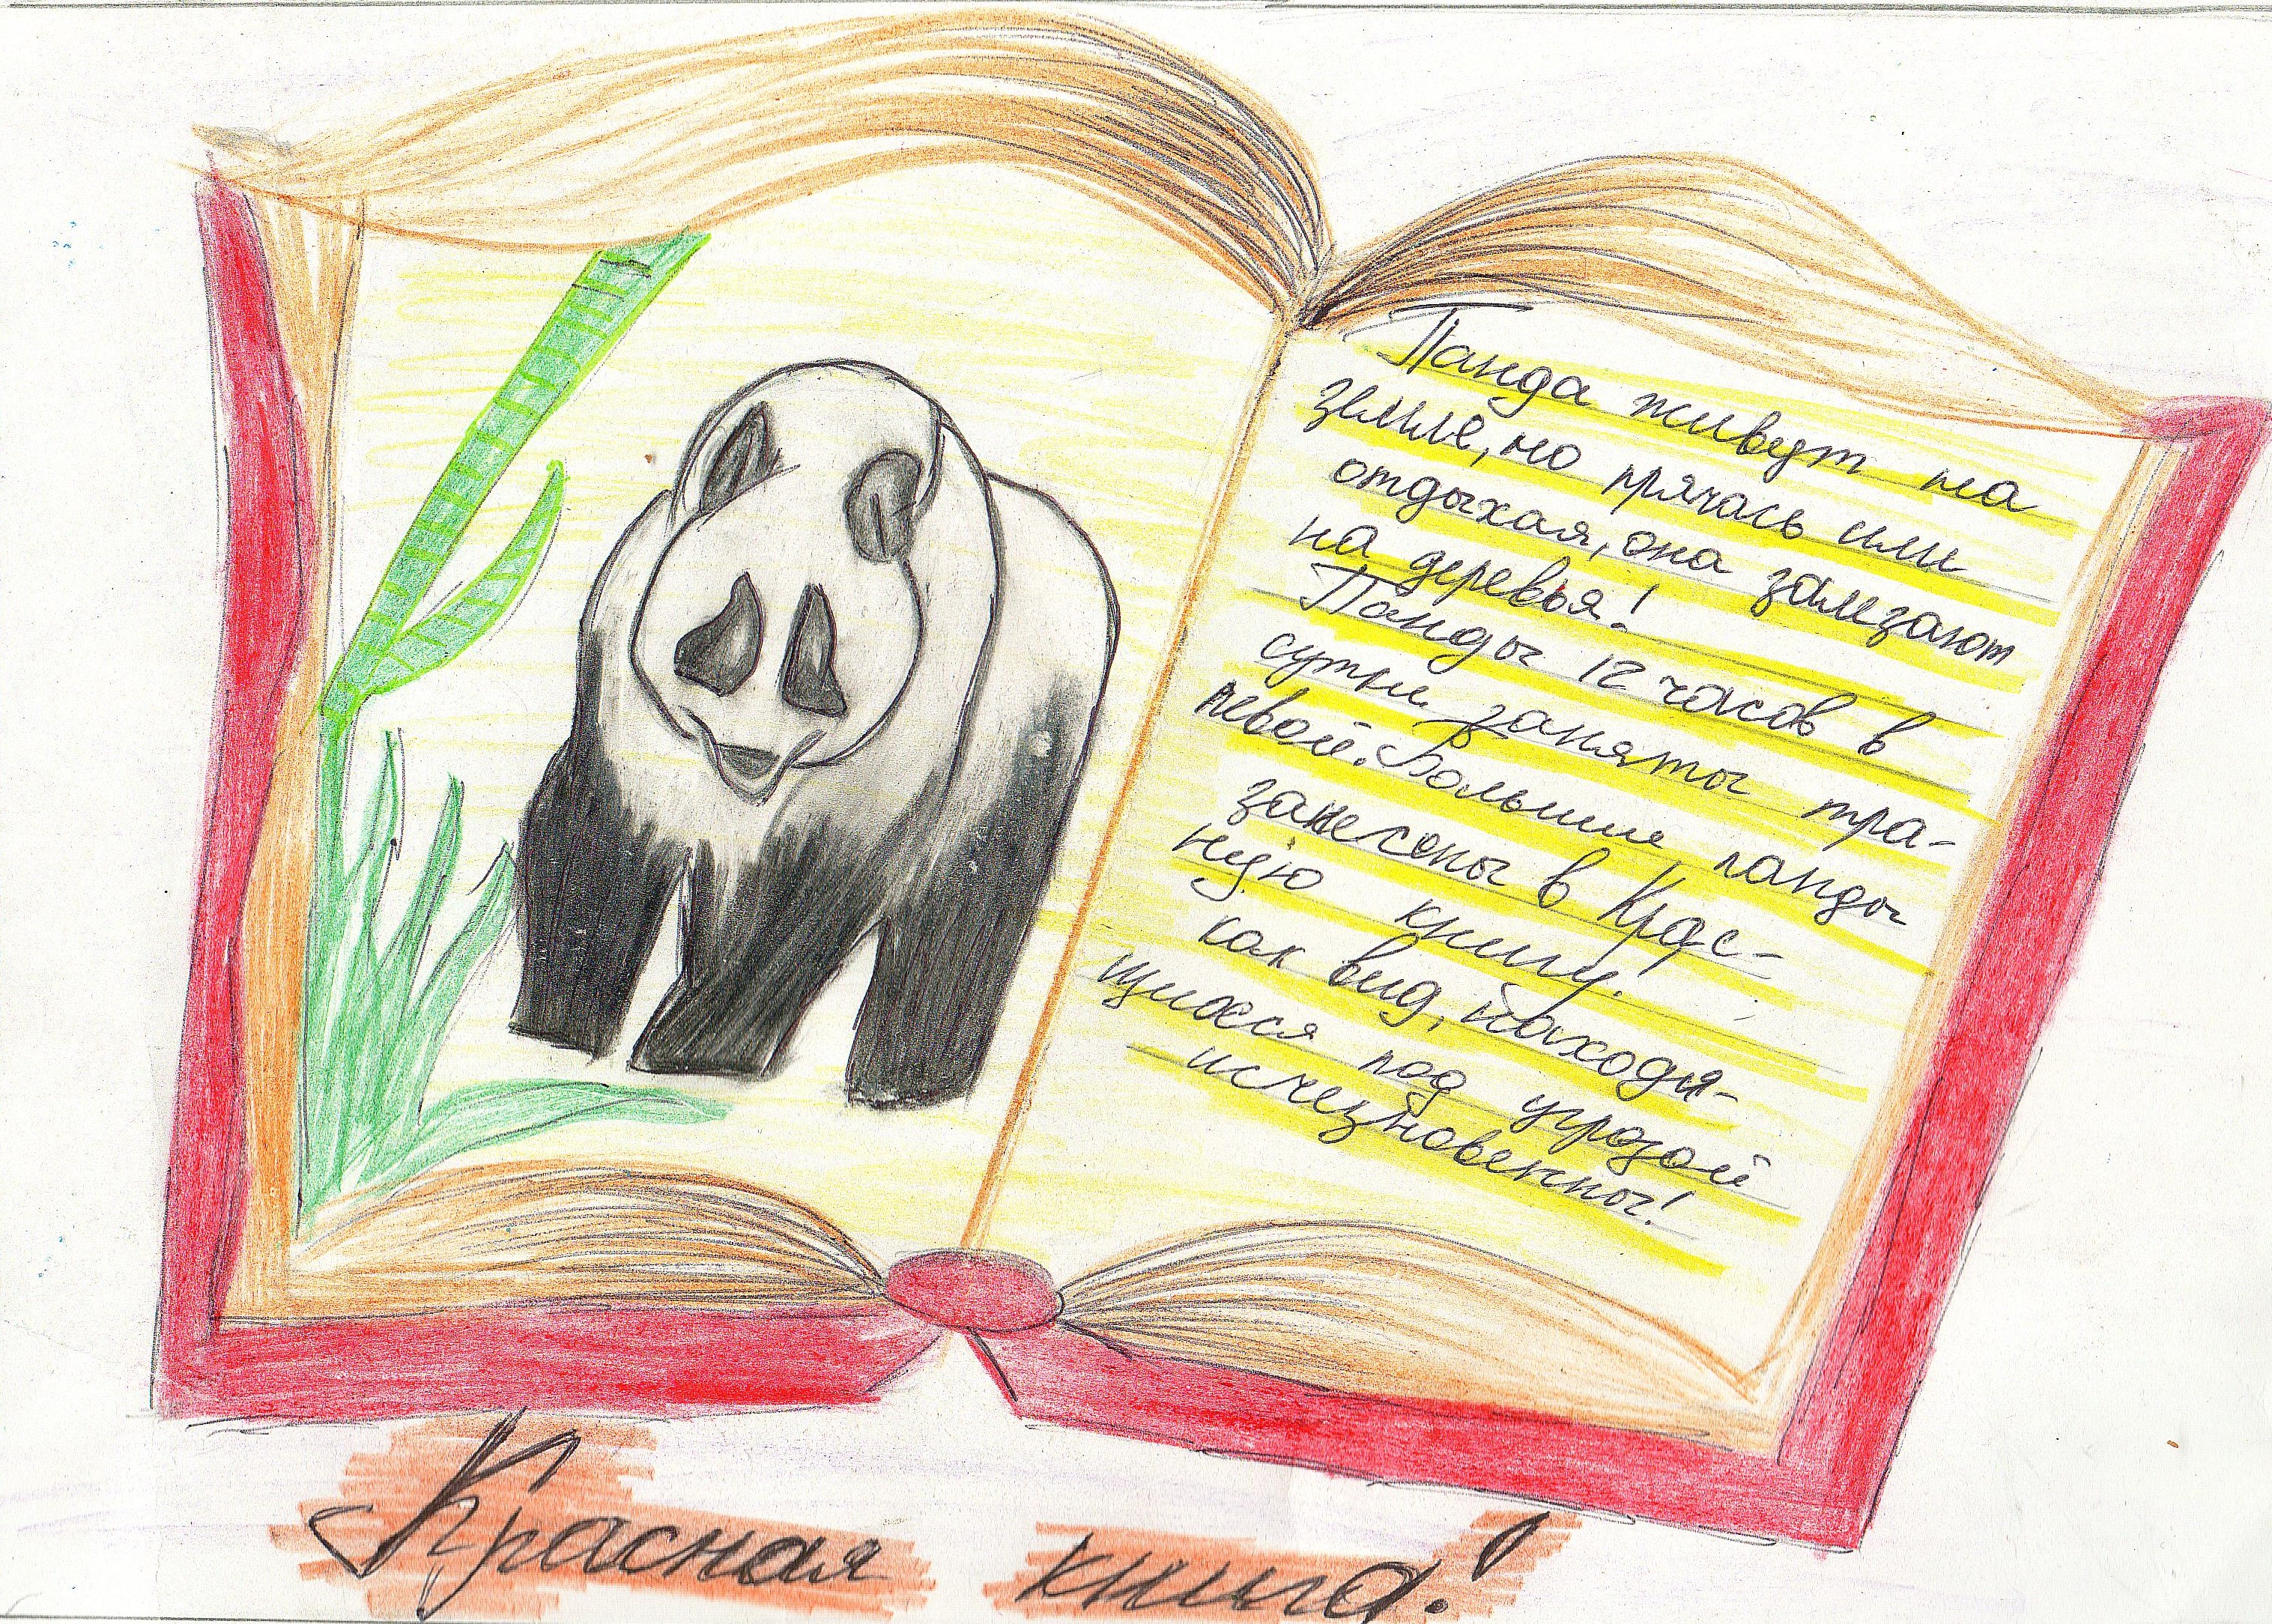 Панда живут на
земле, но прячась или
отдыхая, она залезают
на деревья!
Панды 12 часов в
сутки заняты тра-
певой. Большие панды
занесены в Крас-
ную книгу!
как вид, находя-
щиеся под угрозой
исчезновены!
Красная книга!